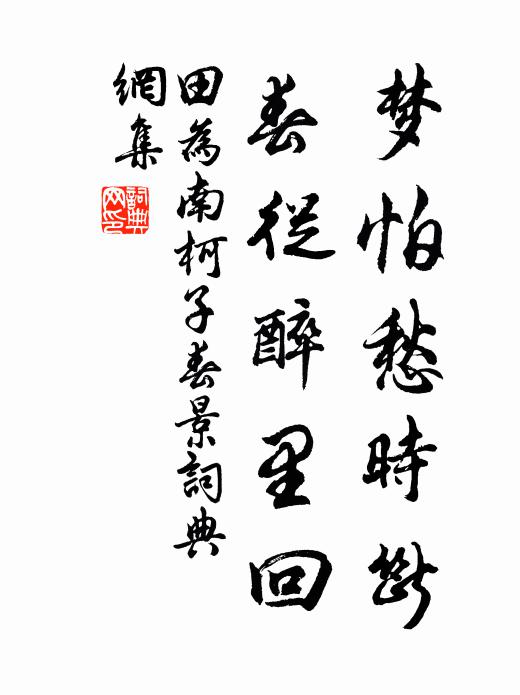 梦怕愁時断
春從醉里回
田為南柯子春景詞典
網集
詞典
网印